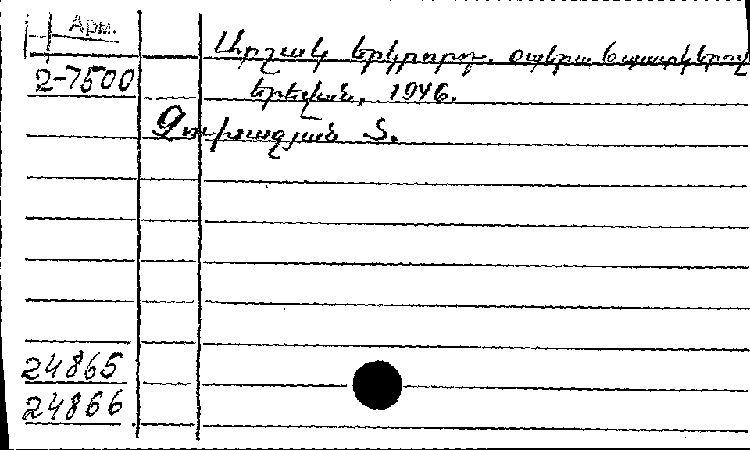 Арм.
2-7500
Արշակ երկրորդ. օպերա
Երևան, 1946.
Չուխաջյան Տ.
24865
24866